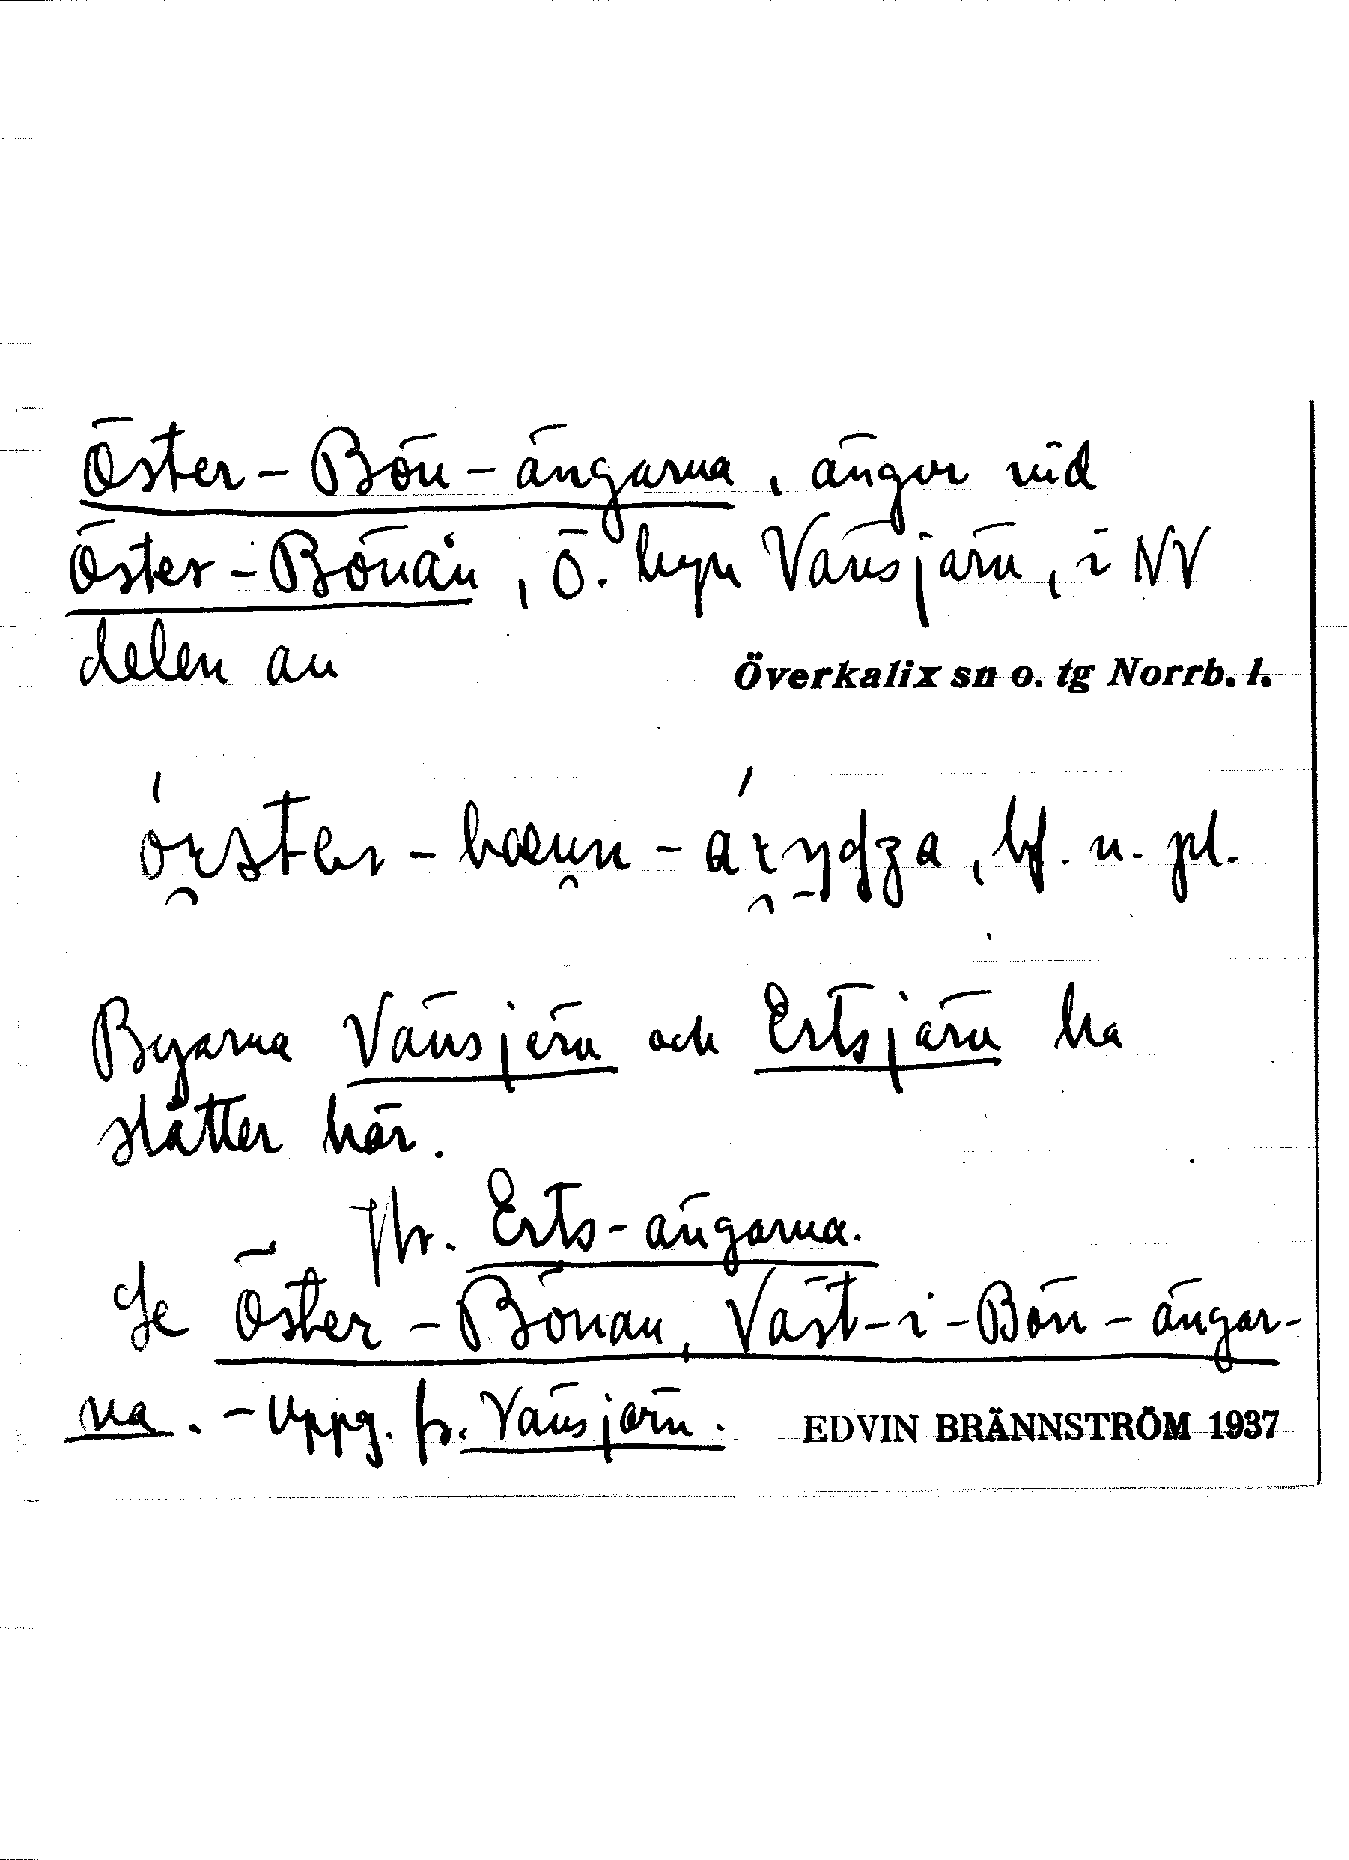 Öster-Bön-ängarna, ängor vid
Öster-Bönån, Ö. byn Vänsjärn, i NV
delen av Överkalix sn o. tg Norrb. l.
bf. n. pl.
Byarna Vänsjärn och Ertsjärn ha
slåtter här.
Jfr. Erts-ängarna.
Se Öster-Bönan, Väst-i-Bön-ängar-
na. - Uppg. fr. Vänsjärn. EDVIN BRÄNNSTRÖM 1937